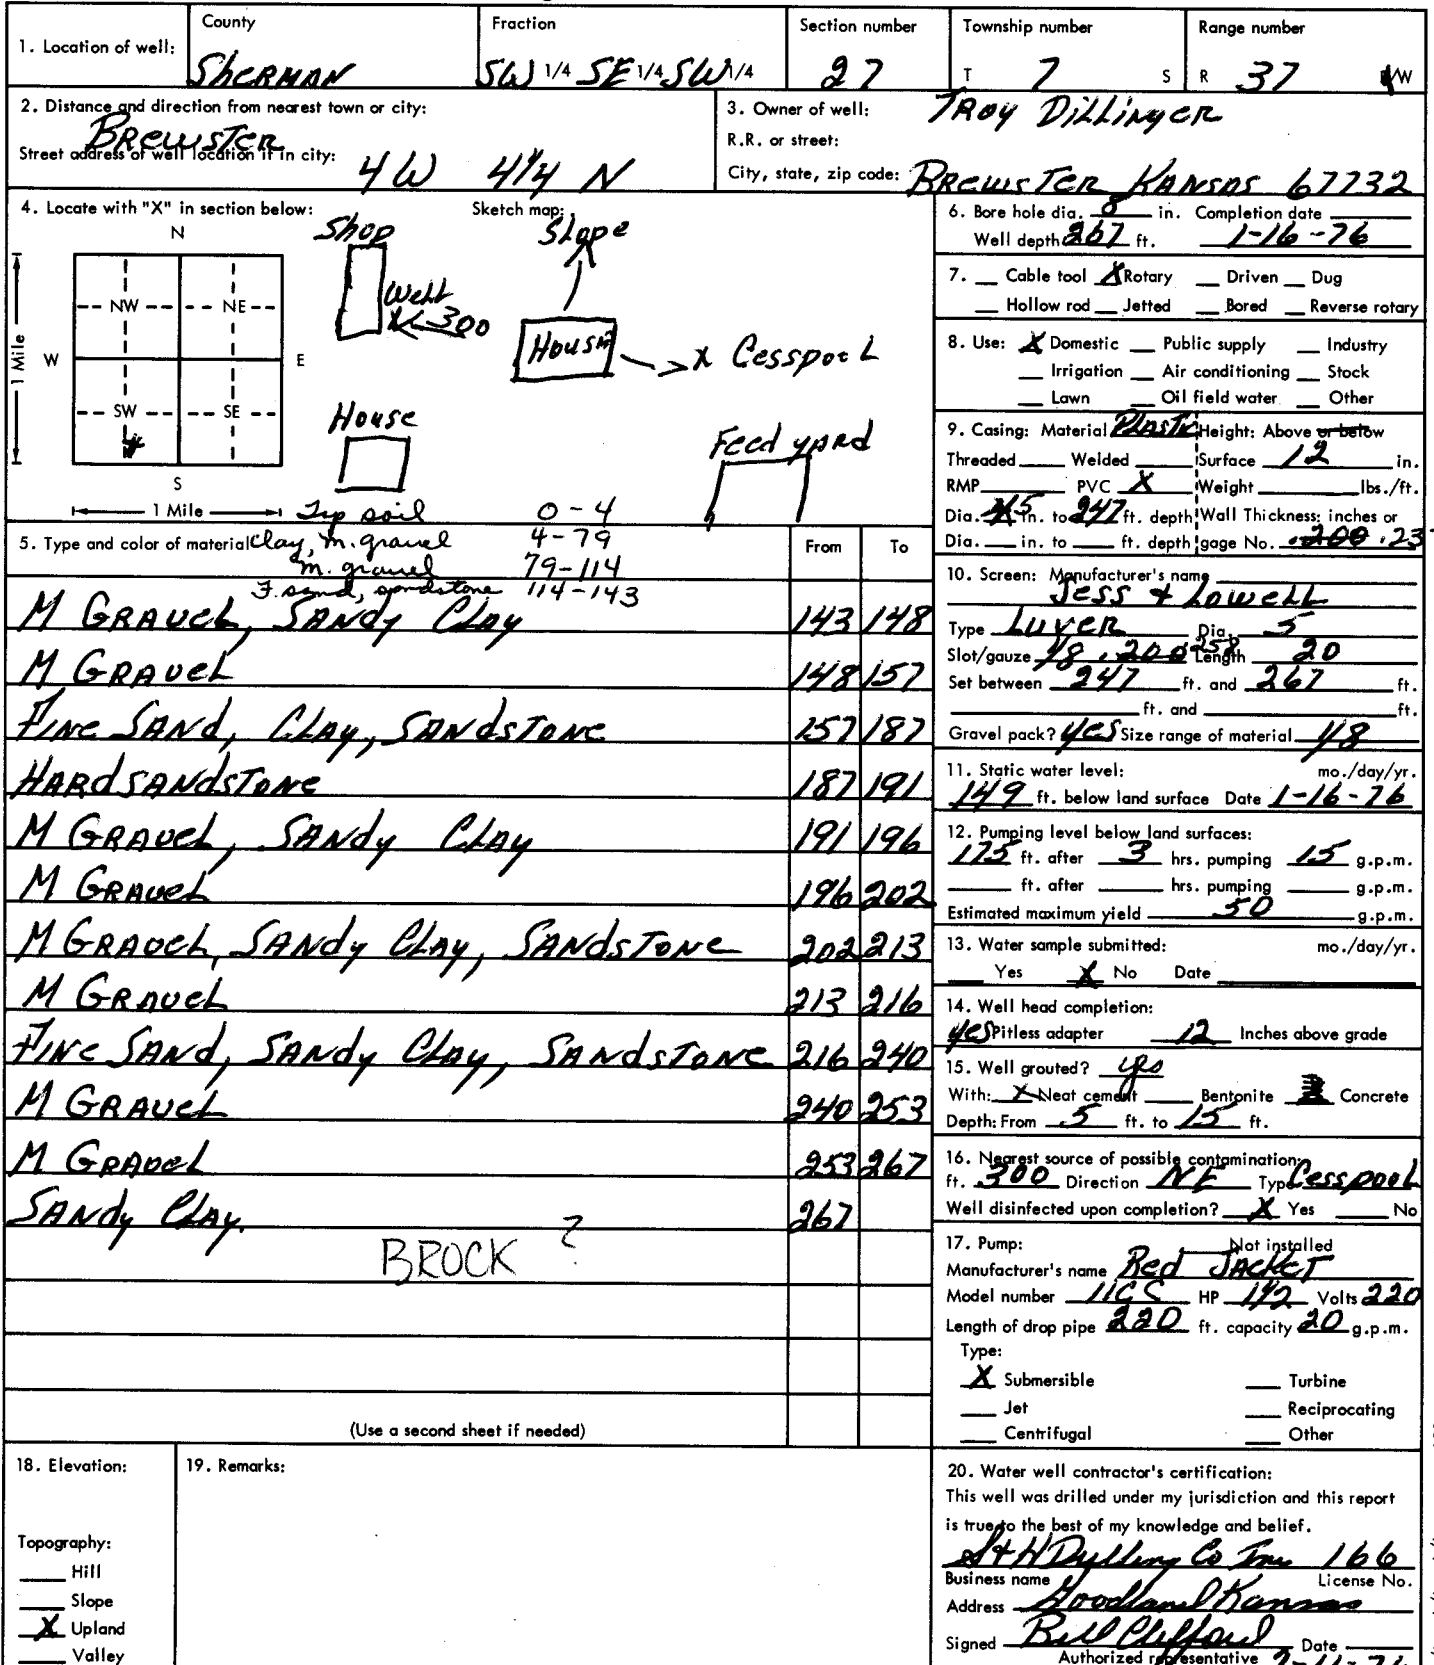 1. Location of well:
County
Sherman
Fraction
SW 1/4 SE 1/4 SW 1/4
Section number
27
Township number
T 7 S
Range number
R 37 E/W
2. Distance and direction from nearest town or city:
Brewster
Street address of well location if in city:
4W 4 1/4 N
3. Owner of well: Troy Dillinger
R.R. or street:
City, state, zip code: Brewster Kansas 67732
4. Locate with "X" in section below:
Sketch map:
N
NW NE
W E
SW SE
X
S
1 Mile
1 Mile
Shop
Slope
Well
X 300
House
X Cesspool
House
Feed yard
5. Type and color of material
From To
Top soil 0-4
Clay, m. gravel 4-79
m. gravel 79-114
F. sand, sandstone 114-143
M Gravel, Sandy Clay 143 148
M Gravel 148 157
Fine Sand, Clay, Sandstone 157 187
Hard Sandstone 187 191
M Gravel, Sandy Clay 191 196
M Gravel 196 202
M Gravel, Sandy Clay, Sandstone 202 213
M Gravel 213 216
Fine Sand, Sandy Clay, Sandstone 216 240
M Gravel 240 253
M Gravel 253 267
Sandy Clay. 267
BROCK ?
(Use a second sheet if needed)
6. Bore hole dia. 8 in. Completion date
Well depth 267 ft. 1-16-76
7. Cable tool X Rotary Driven Dug
Hollow rod Jetted Bored Reverse rotary
8. Use: X Domestic Public supply Industry
Irrigation Air conditioning Stock
Lawn Oil field water Other
9. Casing: Material Plastic Height: Above or below
Threaded Welded Surface 12 in.
RMP PVC X Weight lbs./ft.
Dia. 5 in. to 247 ft. depth Wall Thickness: inches or
Dia. in. to ft. depth gage No. .200 .23
10. Screen: Manufacturer's name
Jess & Lowell
Type Luver Dia. 5
Slot/gauze 1/8 .200 .258 Length 20
Set between 247 ft. and 267 ft.
ft. and ft.
Gravel pack? yes Size range of material 1/8
11. Static water level: mo./day/yr.
149 ft. below land surface Date 1-16-76
12. Pumping level below land surfaces:
175 ft. after 3 hrs. pumping 15 g.p.m.
ft. after hrs. pumping g.p.m.
Estimated maximum yield 50 g.p.m.
13. Water sample submitted: mo./day/yr.
Yes X No Date
14. Well head completion:
yes Pitless adapter 12 Inches above grade
15. Well grouted? yes
With: X Neat cement Bentonite Concrete
Depth: From 5 ft. to 15 ft.
16. Nearest source of possible contamination:
ft. 300 Direction NE Type Cesspool
Well disinfected upon completion? X Yes No
17. Pump: Not installed
Manufacturer's name Red Jacket
Model number HP 1 1/2 Volts 220
Length of drop pipe 220 ft. capacity 20 g.p.m.
Type:
X Submersible Turbine
Jet Reciprocating
Centrifugal Other
18. Elevation:
Topography:
Hill
Slope
X Upland
Valley
19. Remarks:
20. Water well contractor's certification:
This well was drilled under my jurisdiction and this report
is true to the best of my knowledge and belief.
Drilling Co Inc 166
Business name License No.
Address Goodland Kansas
Signed Bill Clifford Date
Authorized representative